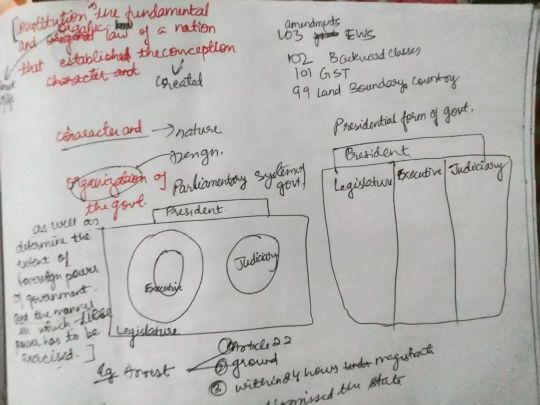 [Constitution is the fundamental
and organic law of a nation
that established the conception
created
character and
character and → nature
Design.
organization of
the govt.
as well as
determine the
extent of
Sovereign power
of government.
and the manner
in which
power has to be
exercised.]
amendments
103 EWS
102 Backward classes
101 GST
99 Land Boundary, Country
Parliamentary system of
govt
President.
Executive
Judiciary
Legislature
Presidential form of govt.
President.
Legislature Executive Judiciary
Eg. Arrest
① Article 22
② ground
③ within 24 hours magistrate
dismissed the State